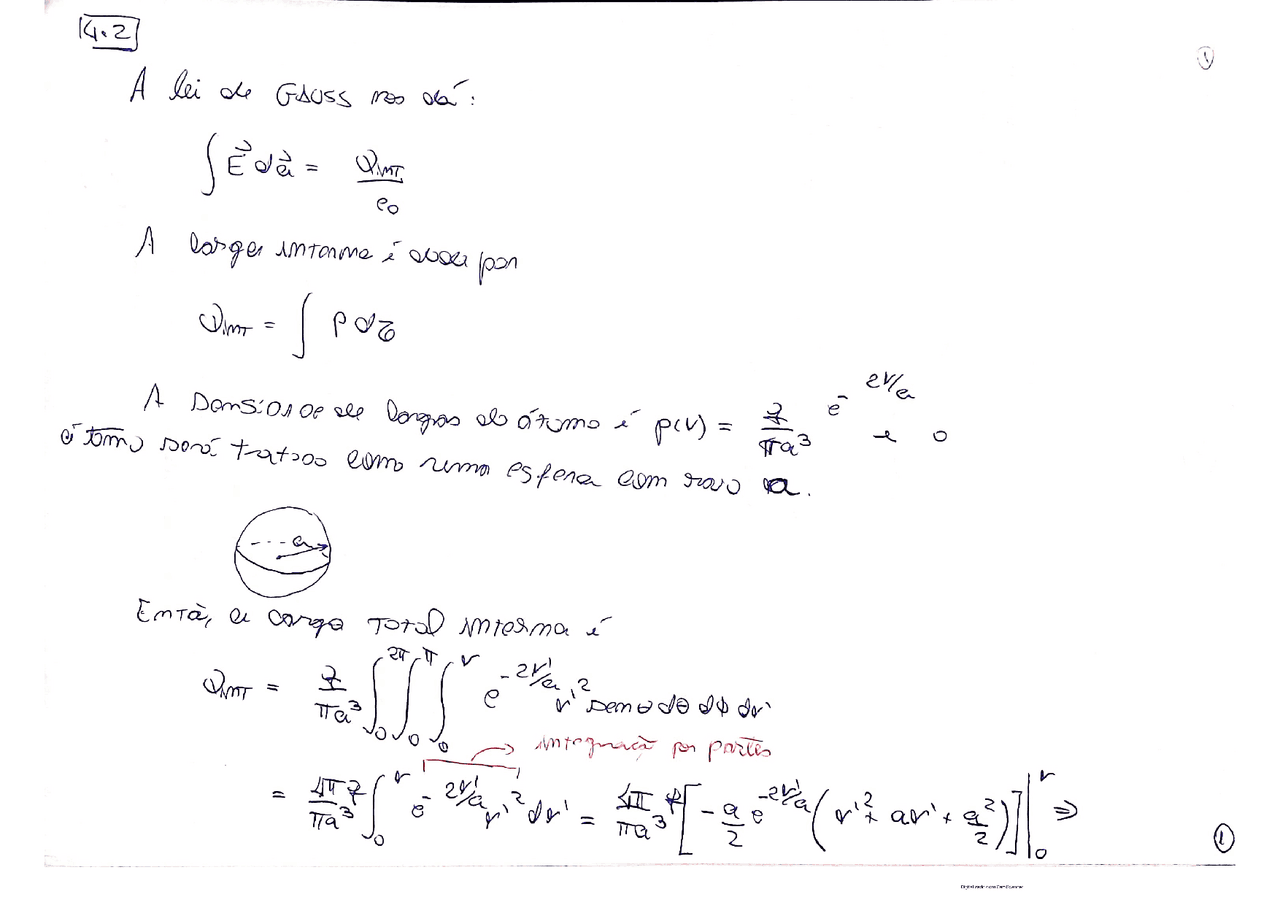 4.2
1
A lei de GAUSS nos dá:
∫ E⃗ da⃗ = Q_INT / e₀
A carga interna é dada por
Q_INT = ∫ ρ dτ
A Densidade de cargas do átomo é ρ(r) = q/πa³ e^-2r/a e o
átomo será tratado como uma esfera com raio a.
a
Entã, a carga Total interna é
Q_INT = q/πa³ ∫₀^2π ∫₀^π ∫₀^r e^-2r'/a r'² sen θ dθ dφ dr'
→ integraçã por partes
= 4πq/πa³ ∫₀^r e^-2r'/a r'² dr' = 4πq/πa³ [ - a/2 e^-2r'/a ( r'² + ar' + a²/2 ) ] |₀^r ⇒
1